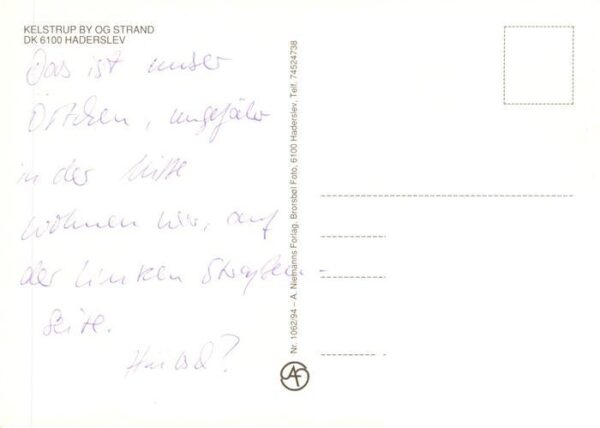 KELSTRUP BY OG STRAND
DK 6100 HADERSLEV
Das ist unser
Örtchen, ungefähr
in der Mitte
wohnen wir, auf
der linken Straßen-
seite.
Hübsch?
Nr. 1062/94 – A. Niemanns Forlag, Brorsbøl Foto, 6100 Haderslev, Telf. 74524738